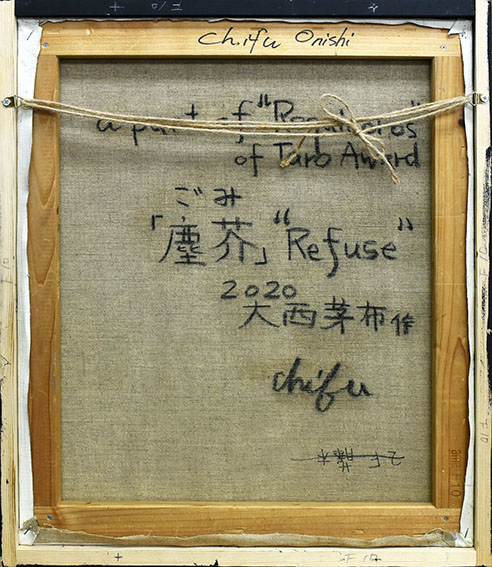 F10
Chifu Onishi
a part of "Requiritos"
of Turb Award
ごみ
「塵芥」"Refuse"
2020
大西芽布作
chifu
F10